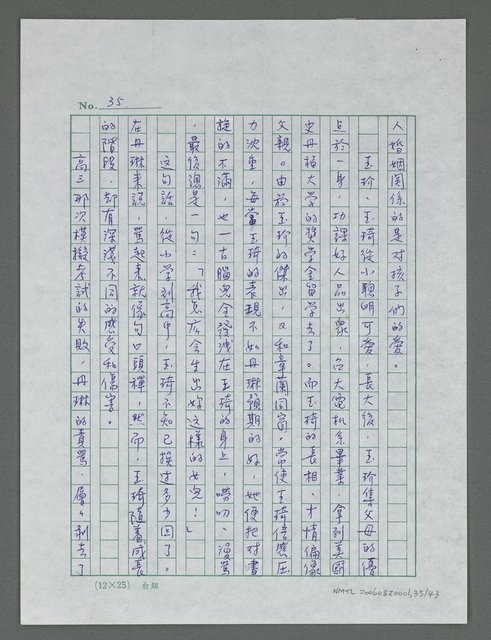 No. 35.
人婚姻关係的是对孩子们的爱。
玉玠、玉琦從小聰明可愛，長大後，玉玠集父母的優
点於一身，功課好人品出眾，台大電机系畢業，拿到美國
史丹福大学的奨学金留学去了。而玉琦的長相、才情偏像
父親。由於玉玠的傑出，又和章蘭同窗。常使玉琦倍感压
力沈重，每當玉琦的表現不如丹琳預期的好，她便把对書
旋的不滿，也一古腦兒全發洩在玉琦的身上，嘮叨、漫罵
，最後總是一句：「我怎広会生出妳这樣的女兒？」
这句話，從小学到高中，玉琦不知已挨过多少回了。
在丹琳来說，罵起来就像句口頭禪，然而，玉琦隨着成長
的階段，却有深浅不同的感受和傷害。
高三那次模擬考試的失敗，丹琳的責罵，層々剥去了
(12×25) 台組
NMTL 20060820001,35/43